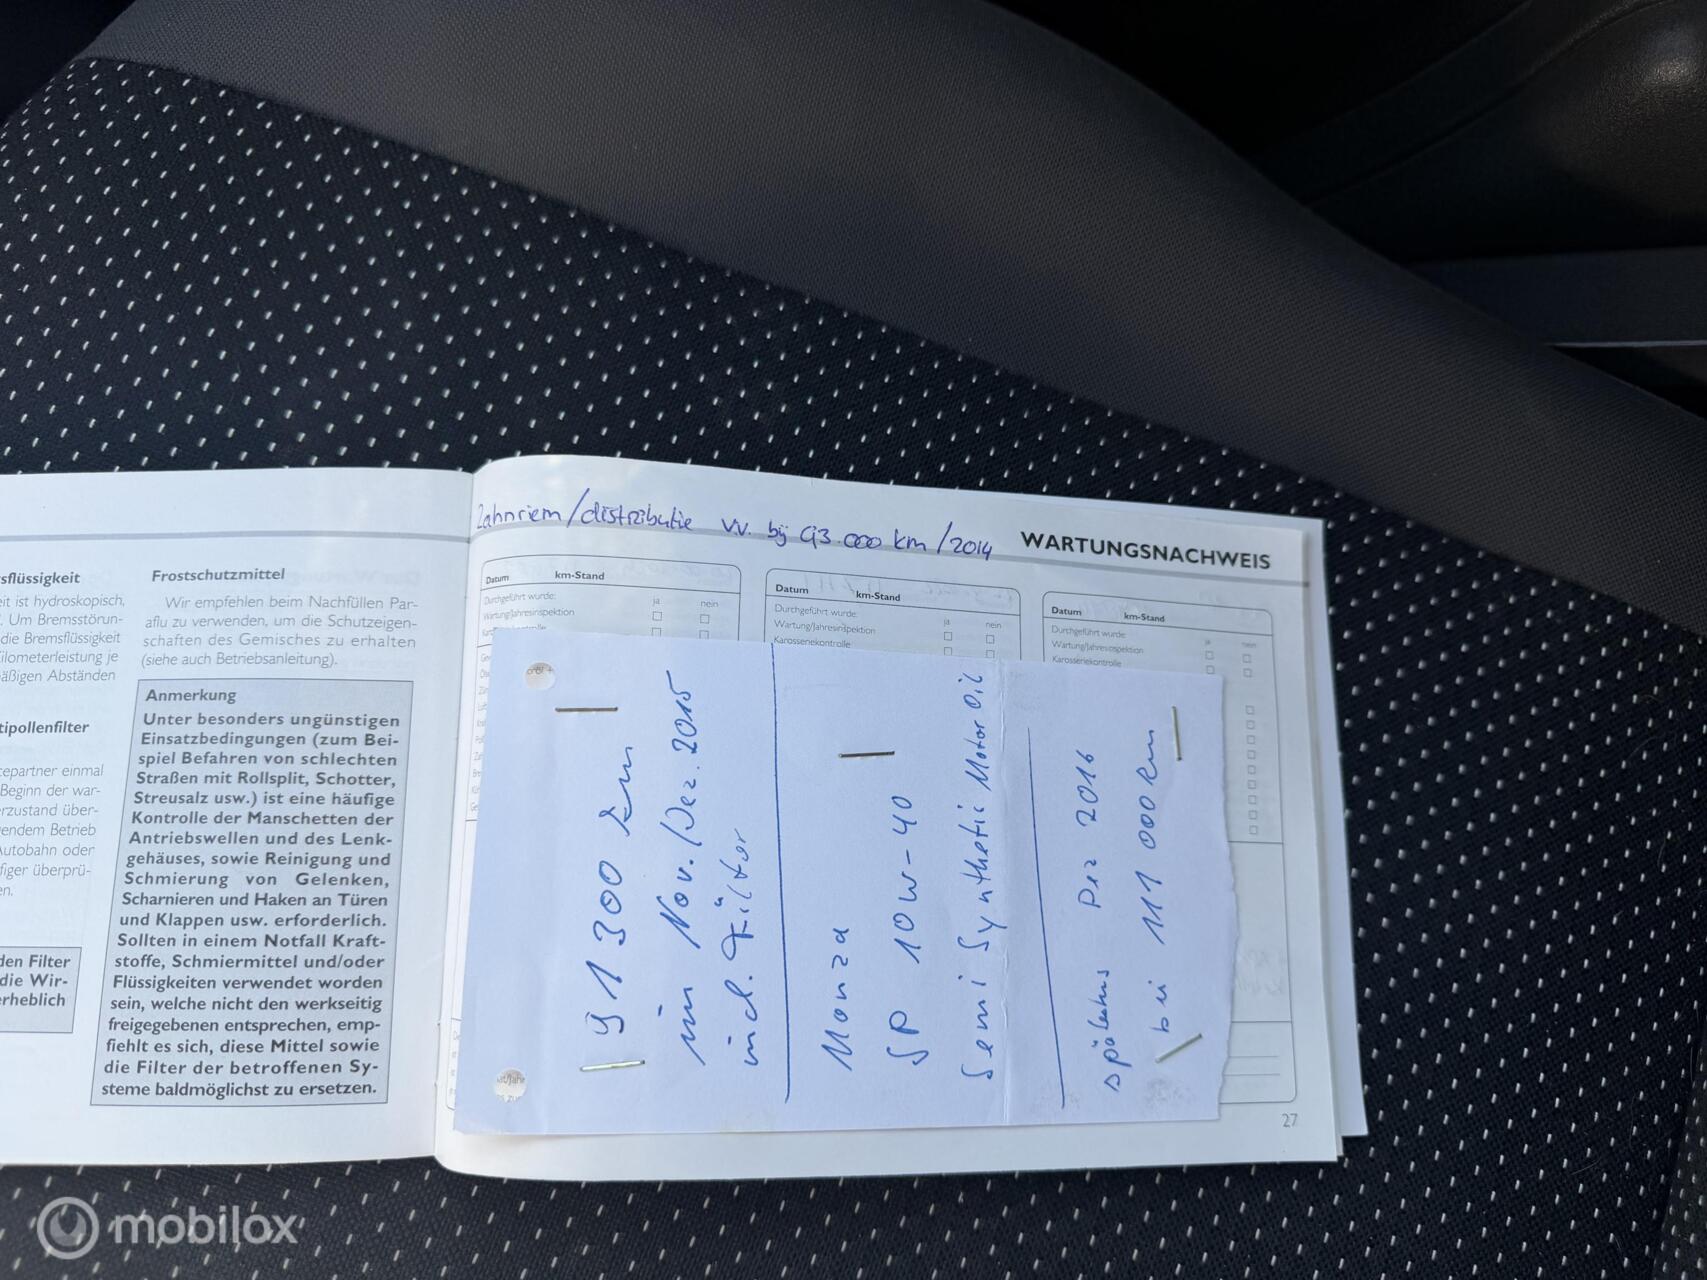 sflüssigkeit
eit ist hydroskopisch,
. Um Bremsstörun-
die Bremsflüssigkeit
ilometerleistung je
äßigen Abständen
tipollenfilter
cepartner einmal
Beginn der war-
rzustand über-
endem Betrieb
Autobahn oder
figer überprü-
en.
den Filter
die Wir-
erheblich
Frostschutzmittel
Wir empfehlen beim Nachfüllen Par-
aflu zu verwenden, um die Schutzeigen-
schaften des Gemisches zu erhalten
(siehe auch Betriebsanleitung).
Anmerkung
Unter besonders ungünstigen
Einsatzbedingungen (zum Bei-
spiel Befahren von schlechten
Straßen mit Rollsplit, Schotter,
Streusalz usw.) ist eine häufige
Kontrolle der Manschetten der
Antriebswellen und des Lenk-
gehäuses, sowie Reinigung und
Schmierung von Gelenken,
Scharnieren und Haken an Türen
und Klappen usw. erforderlich.
Sollten in einem Notfall Kraft-
stoffe, Schmiermittel und/oder
Flüssigkeiten verwendet worden
sein, welche nicht den werkseitig
freigegebenen entsprechen, emp-
fiehlt es sich, diese Mittel sowie
die Filter der betroffenen Sy-
steme baldmöglichst zu ersetzen.
Zahnriem/distributie v.v. bij 93.000 km/2014
WARTUNGSNACHWEIS
Datum km-Stand
Durchgeführt wurde:
ja nein
Wartung/Jahresinspektion
Datum km-Stand
Durchgeführt wurde:
ja nein
Wartung/Jahresinspektion
Karosseriekontrolle
Datum km-Stand
Durchgeführt wurde:
ja nein
Wartung/Jahresinspektion
Karosseriekontrolle
91 300 km
im Nov./Dez. 2015
incl. Filter
Monza
SP 10W-40
Semi Synthetic Motor Oil
spätestens Dez 2016
bei 111 000 km
27
mobilox